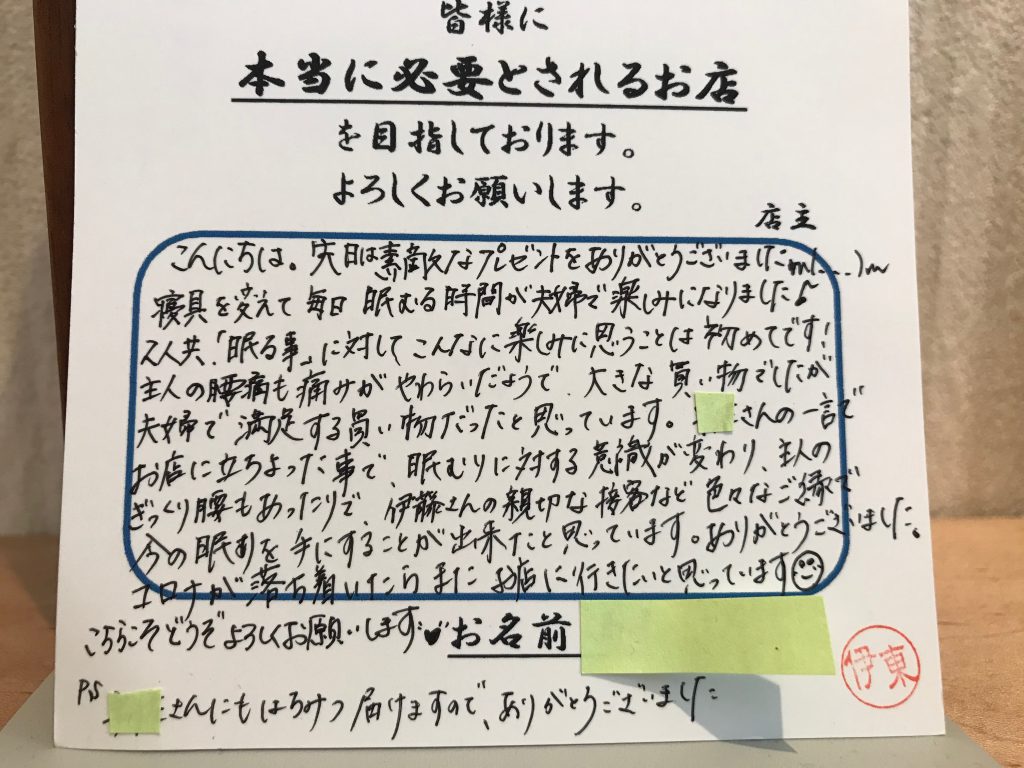 皆様に
本当に必要とされるお店
を目指しております。
よろしくお願いします。
店主
こんにちは。先日は素敵なプレゼントをありがとうございましたm(__)m
寝具を変えて毎日眠むる時間が夫婦で楽しみになりました♪
2人共、「眠る事」に対してこんなに楽しみに思うことは初めてです!
主人の腰痛も痛みがやわらいだようで、大きな買い物でしたが
夫婦で満足する買い物だったと思っています。 さんの一言で
お店に立ちよった事で、眠むりに対する意識が変わり、主人の
ぎっくり腰もあったりで、伊藤さんの親切な接客など色々なご縁で
今の眠むりを手にすることが出来たと思っています。ありがとうございました。
コロナが落ち着いたらまたお店に行きたいと思っています☺
こちらこそどうぞよろしくお願いします♥
お名前
伊東
PS さんにも 届けますので、ありがとうございました